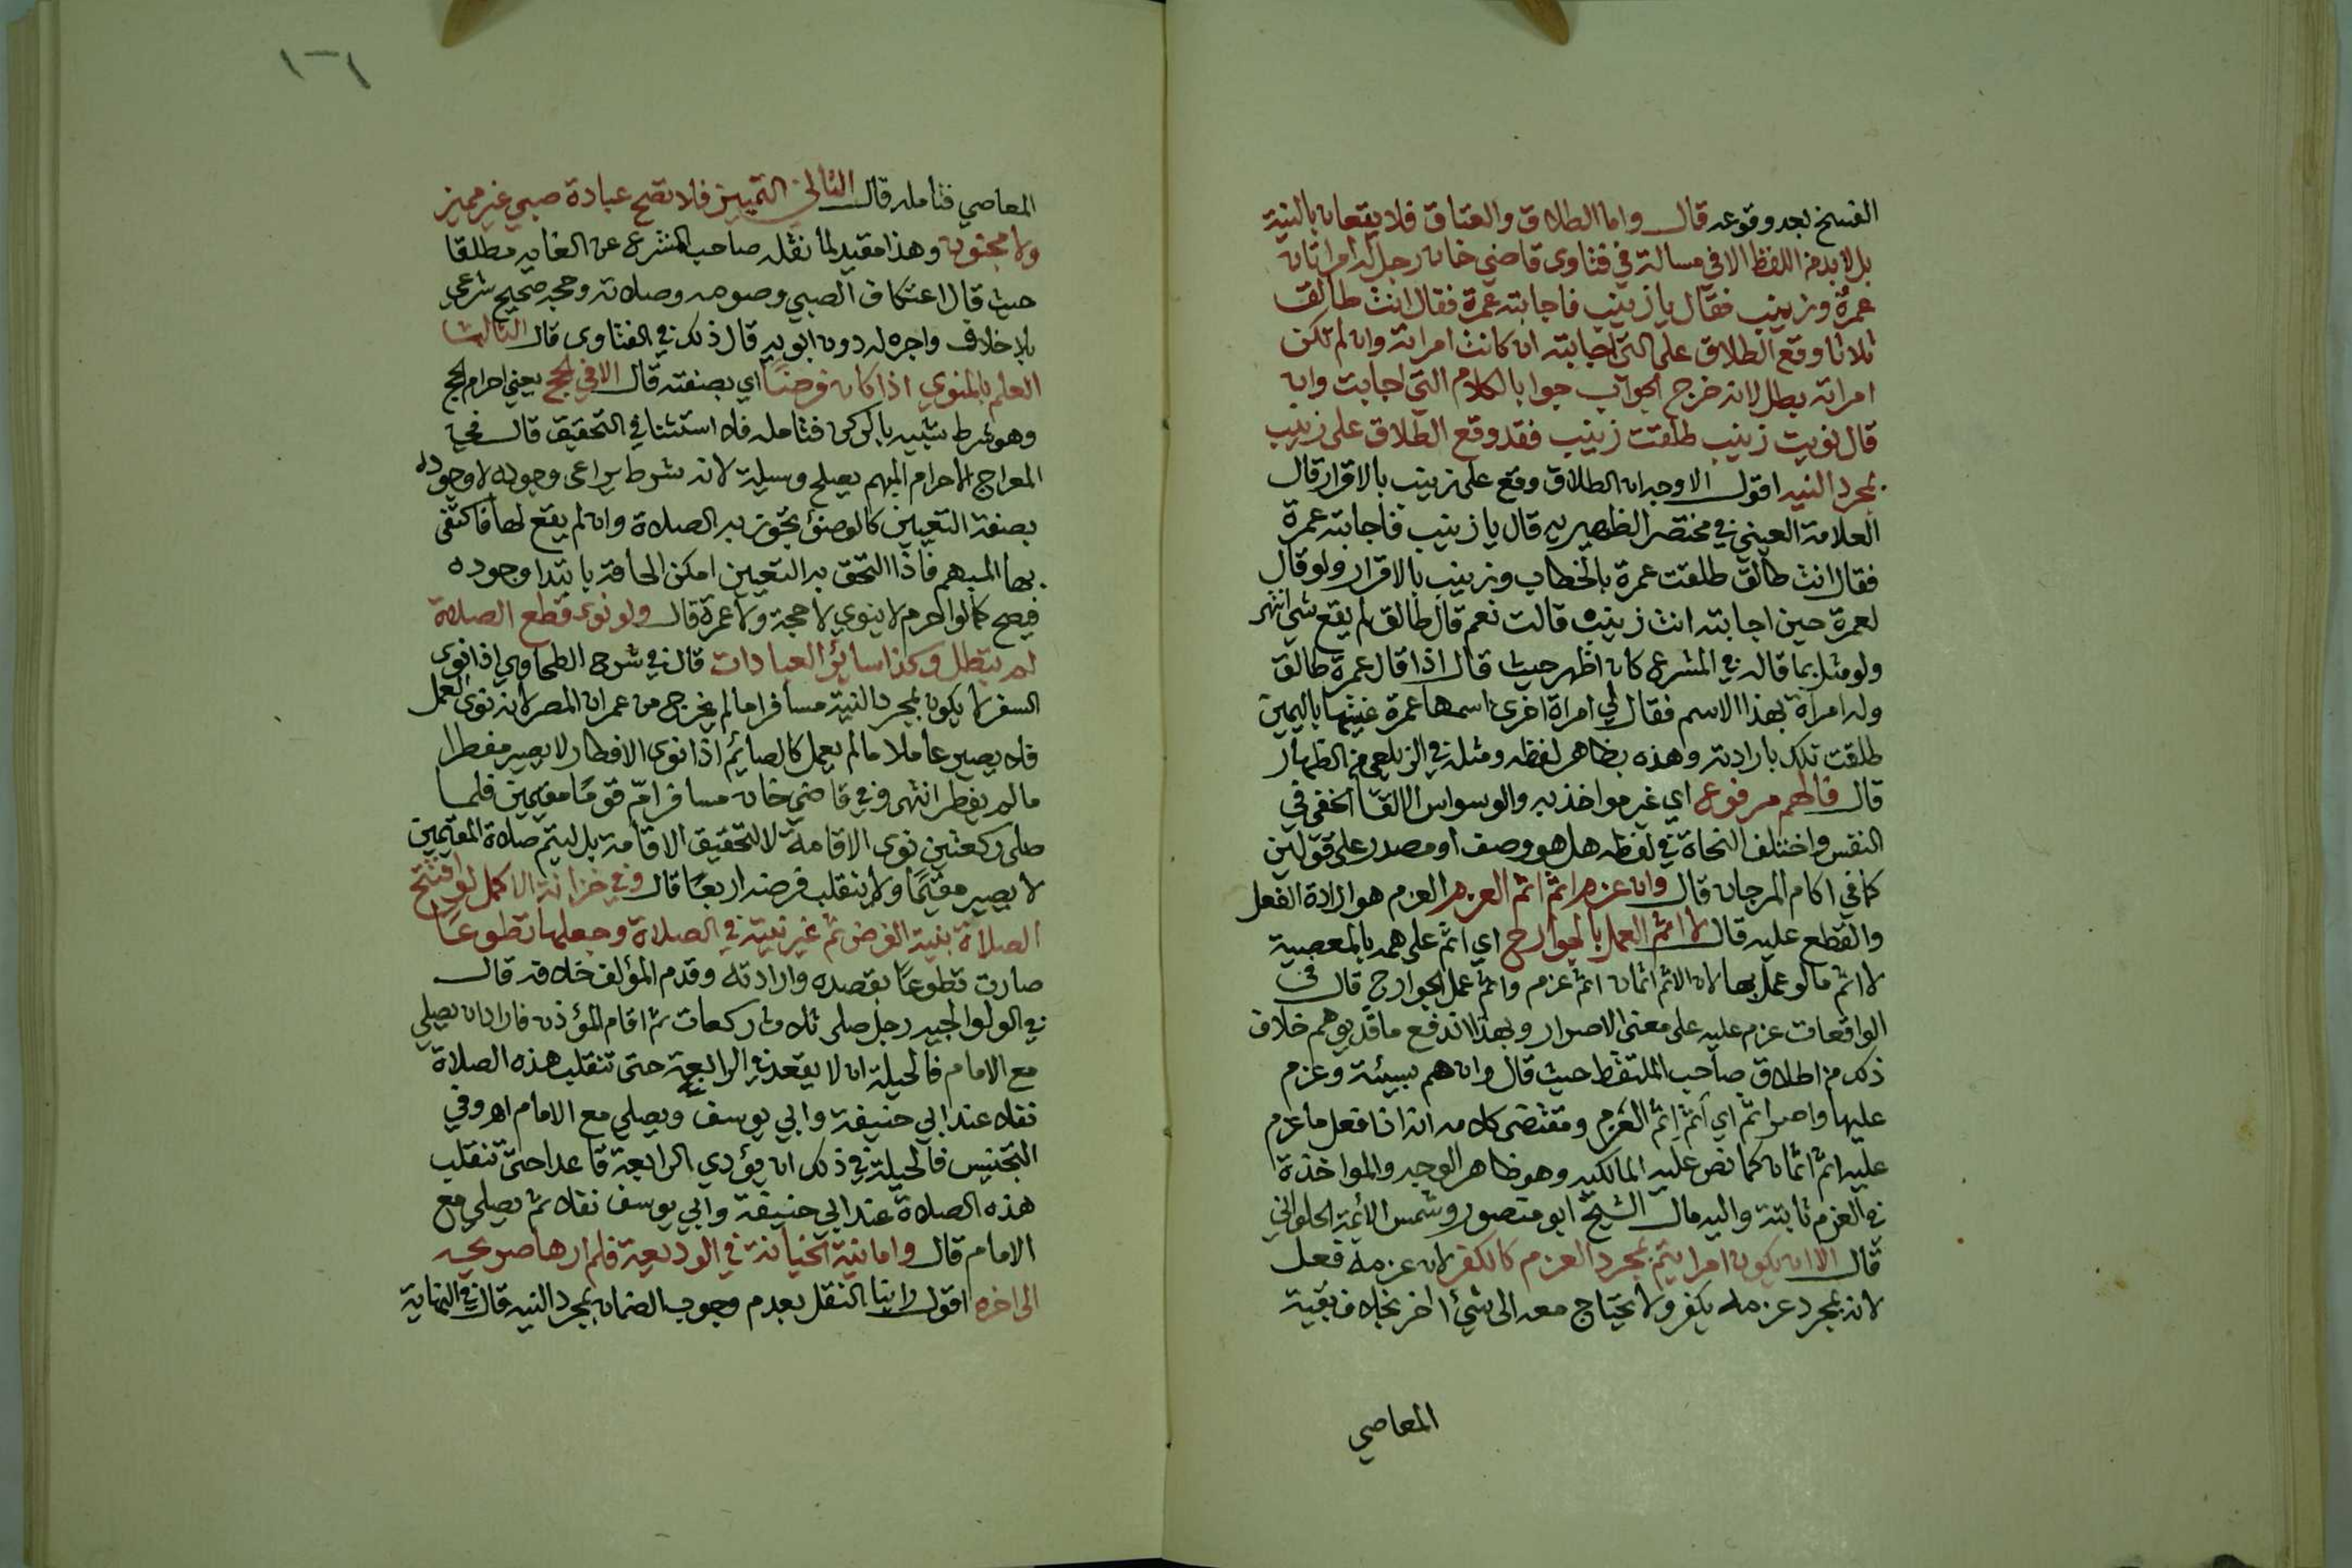 الفسخ بعد وقوعه قال واما الطلاق والعتاق فلا يقعان بالنية
بل لا بد من اللفظ الا في مسالة في فتاوى قاضي خان رجل له امراتان
عمرة وزينب فقال يا زينب فاجابته عمرة فقال انت طالق
ثلاثا وقع الطلاق على التي اجابته ان كانت امراته وان لم تكن
امراته بطل لانه خرج الجواب جوابا لكلام التي اجابت وان
قال نويت زينب طلقت زينب فقد وقع الطلاق على زينب
بمجرد النيه اقول الاوجه ان الطلاق وقع على زينب بالاقرار قال
العلامة العيني في مختصر الظهيريه قال يا زينب فاجابته عمرة
فقال انت طالق طلقت عمرة بالخطاب وزينب بالاقرار ولو قال
لعمرة حين اجابته انت زينب قالت نعم قال طالق لم يقع شي انتهى
ولو مثل بما قاله في المشرع كان اظهر حيث قال اذا قال عمرة طالق
وله امراة بهذا الاسم فقال لي امراة اخرى اسمها عمرة عنيتها باليمين
طلقت تلك بارادته وهذه بظاهر لفظه ومثله في الزيلعي من الظهار
قال فالهم مرفوع اي غير مواخذ به والوسواس الالقا الخفي في
النفس واختلف النحاة في لفظه هل هو وصف او مصدر على قولين
كما في اكام المرجان قال وان عزم اثم اثم العزم العزم هو ارادة الفعل
والقطع عليه قال لا اثم العمل بالجوارح اي اثم على همه بالمعصية
لا اثم ما لو عمل بها لان الاثم اثمان اثم عزم واثم عمل الجوارح قال في
الواقعات عزم عليه على معنى الاصرار وبهذا اندفع ما قد يوهم خلاف
ذلك من اطلاق صاحب الملتقط حيث قال وان هم بسيئة وعزم
عليها واصر اثم اي اثم إثم العَزم ومقتضى كلامه انه اذا فعل ما عزم
عليه اثم اثمان كما نص عليه المالكيه وهو ظاهر الوجه والمواخذة
في العزم ثابتة واليه مال الشيخ ابو منصور وشمس الأئمة الحلواني
قال الا ان يكون امرا يتم بمجرد العزم كالكفر لان عزمه فعل
لانه بمجرد عزمه يكفر ولا يحتاج معه الى شيئ اخر بخلاف بقية
المعاصي
١٢١
المعاصي فتامله قال الثاني التمييز فلا تصح عبادة صبي غير مميز
ولا مجنون وهذا مقيد لما نقله صاحب المشرع عن الغايه مطلقا
حيث قال اعتكاف الصبي وصومه وصلاته وحجه صحيح شرعي
بلا خلاف واجره له دون ابويه قال ذلك في الفتاوى قال الثالث
العلم بالمنوي اذا كان فرضًا اي بصفته قال الا في الحج يعني احرام الحج
وهو شرط شبيه بالركن فتامله فلا استثنا في التحقيق قال في
المعراج الاحرام المبهم يصلح وسيلة لانه شرط يراعى وجوده لا وجوده
بصفة التعيين كالوضؤ تجوز به الصلاة وان لم يقع لها فاكتفى
بها المبهم فاذا التحق به التعيين امكن الحاقه بابتدا وجوده
فيصح كما لو احرم لا ينوي لا حجة ولا عمرة قال ولو نوى قطع الصلاة
لم تبطل وكذا سائر العبادات قال في شرح الطحاوي اذا نوى
السفر لا يكون بمجرد النية مسافرا ما لم يخرج من عمران المصر لانه نوى العمل
فلا يصير عاملا ما لم يعمل كالصايم اذا نوى الافطار لا يصير مفطرا
ما لم يفطر انتهى وفي قاضي خان مسافر امّ قومًا مقيمين فلما
صلى ركعتين نوى الاقامة لا لتحقيق الاقامة بل ليتم صلاة المقيمين
لا يصير مقيمًا ولا ينقلب فرضه اربعًا قال وفي خزانة الاكمل لو افتتح
الصلاة بنية الفرض ثم غير نيته في الصلاة وجعلها تطوعًا
صارت تطوعًا بقصده وارادته وقدم المؤلف خلافه قال
في الولوالجيه رجل صلى ثلاث ركعات ثم اقام المؤذن فاراد ان يصلي
مع الامام فالحيلة ان لا يقعد في الرابعة حتى تنقلب هذه الصلاة
نفلا عند ابي حنيفة وابي يوسف ويصلي مع الامام اه وفي
التجنيس فالحيلة في ذلك ان يؤدي الرابعة قاعدا حتى تنقلب
هذه الصلاة عند ابي حنيفة وابي يوسف نفلا ثم يصلي مع
الامام قال واما نية الخيانة في الوديعة فلم ارها صريحه
الى اخره اقول راينا النقل بعدم وجوب الضمان بمجرد النيه قال في النهاية